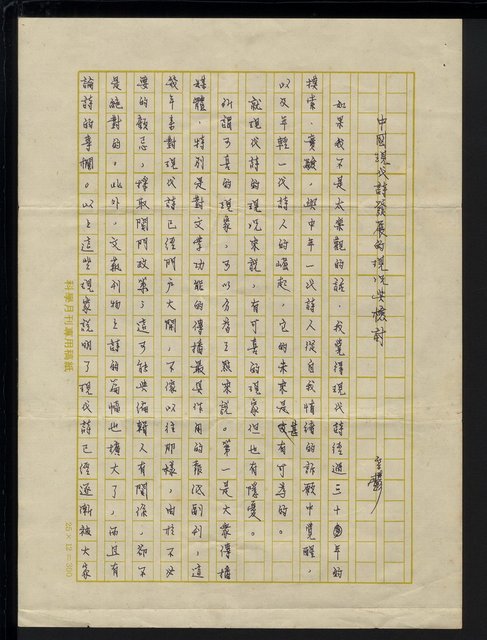 中國現代詩發展的現況與檢討
如果我不是太樂觀的話，我覺得現代詩經過三十年的
摸索、實驗，與中年一代詩人從自我情緒的訴願中覺醒，
以及年輕一代詩人的崛起，它的未來是甚有可為的。
就現代詩的現況來說，有可喜的現象但也有隱憂。
所謂可喜的現象，可以分為三點來說。第一是大眾傳播
媒體，特別是對文學功能的傳播最具作用的報紙副刊，這
幾年喜對現代詩已經門戶大開，不像以往那樣，由於不必
要的顧忌，採取關門政策；這可能與編輯人有關係，卻不
是絕對的。此外，文藝刊物上詩的篇幅也擴大了，而且有
論詩的專欄。以上這些現象說明了現代詩已經逐漸被大家
科學月刊專用稿紙
25×12=300